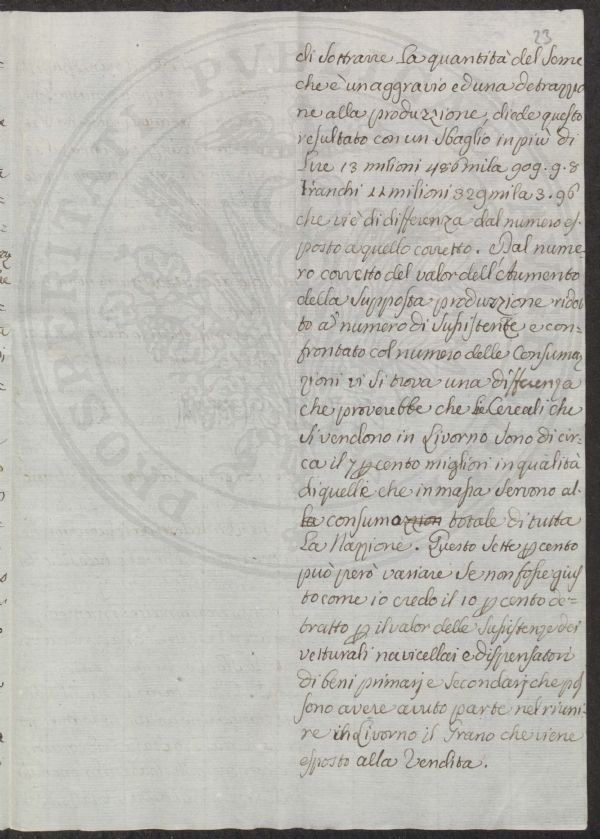 23
di sottrarre la quantità del Seme
che è un aggravio ed una detrazzio
ne alla produzzione, diede questo
resultato con un sbaglio in più di
Lire 13 milioni 486 mila 909. 9. 8
franchi 11 milioni 329 mila 3. 96
che vi è di differenza dal numero es-
posto a quello corretto. Dal nume-
ro corretto del valor dell'Aumento
della supposta produzzione ridot
to a numero di Susistenze e con-
frontato col numero delle Consumaz
zioni vi si trova una differenza
che proverebbe che le Cereali che
si vendono in Livorno sono di cir-
ca il 7 p cento migliori in qualità
di quelle che in massa servono al-
la consumazzion totale di tutta
la Nazzione. Questo sette p cento
può però variare se non fosse gius
to come io credo il 10 p cento de-
tratto p il valor delle Susistenze dei
vetturali navicellai e dispensatori
di beni primarj e secondarj che pos
sono avere avuto parte nel riuni-
re in Livorno il Grano che viene
esposto alla Vendita.
PROSPERITATI PVBL